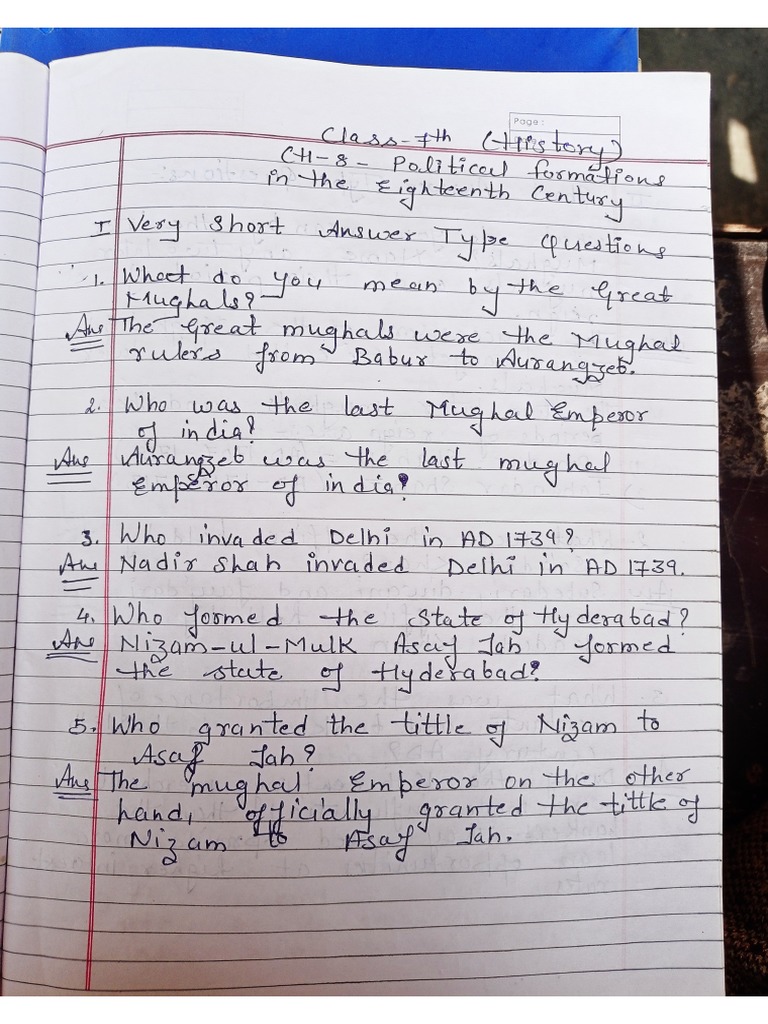 Page:
Class-7th (History)
CH-8- Political formations
in the Eighteenth Century
I Very Short Answer Type Questions
1. What do you mean by the Great
Mughals?
Ans The Great mughals were the Mughal
rulers from Babur to Aurangzeb.
2. Who was the last Mughal Emperor
of india?
Ans Aurangzeb was the last mughal
Emperor of india?
3. Who invaded Delhi in AD 1739?
Ans Nadir Shah invaded Delhi in AD 1739.
4. Who formed the State of Hyderabad?
Ans Nizam-ul-Mulk Asaf Jah formed
the state of Hyderabad?
5. Who granted the tittle of Nizam to
Asaf Jah?
Ans The mughal Emperor on the other
hand, officially granted the tittle of
Nizam to Asaf Jah.